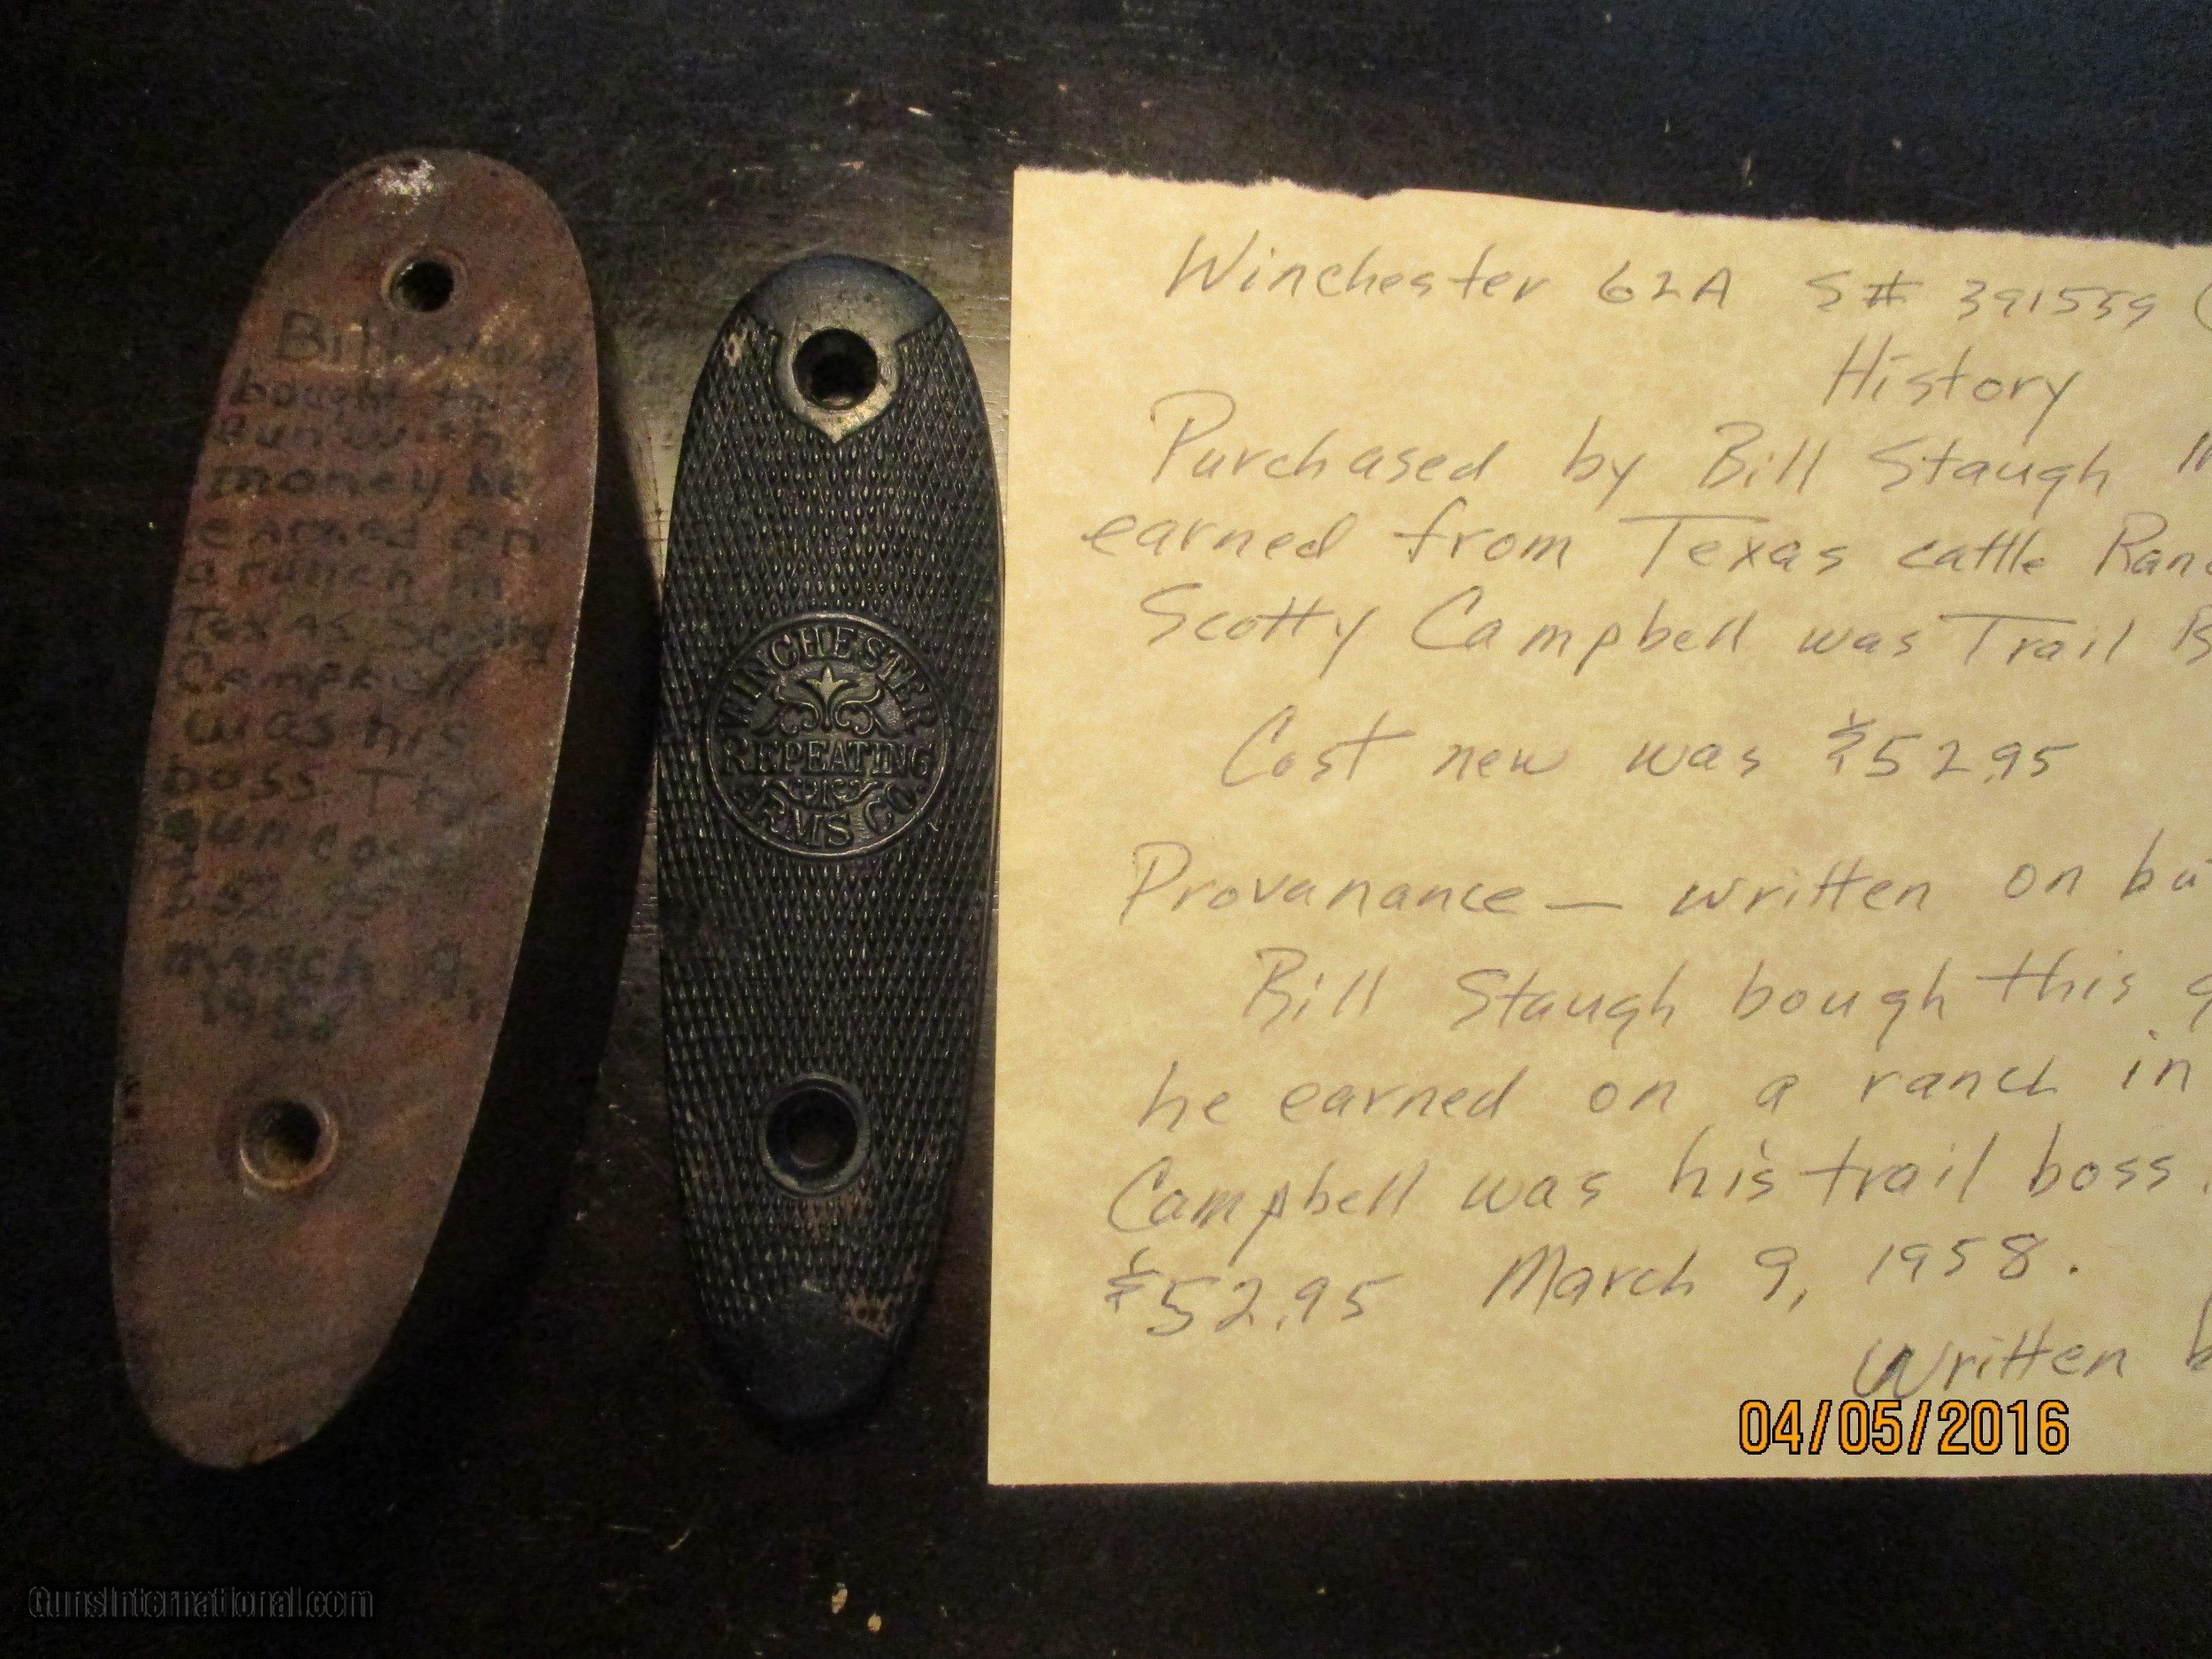 Bill
bought this
Gun with
money he
earned on
a ranch in
Texas Scotty
Campbell
was his
boss. This
gun cost
$52.95
MARCH 9,
1958
WINCHESTER
REPEATING
ARMS CO.
Winchester 62A S# 391559 (
History
Purchased by Bill Staugh
earned from Texas cattle
Scotty Campbell was Trail
Cost new was $52.95
Provanance — written on
Bill Staugh bough this
he earned on a ranch in
Campbell was his trail boss.
$52.95 March 9, 1958.
Written
04/05/2016
GunsInternational.com